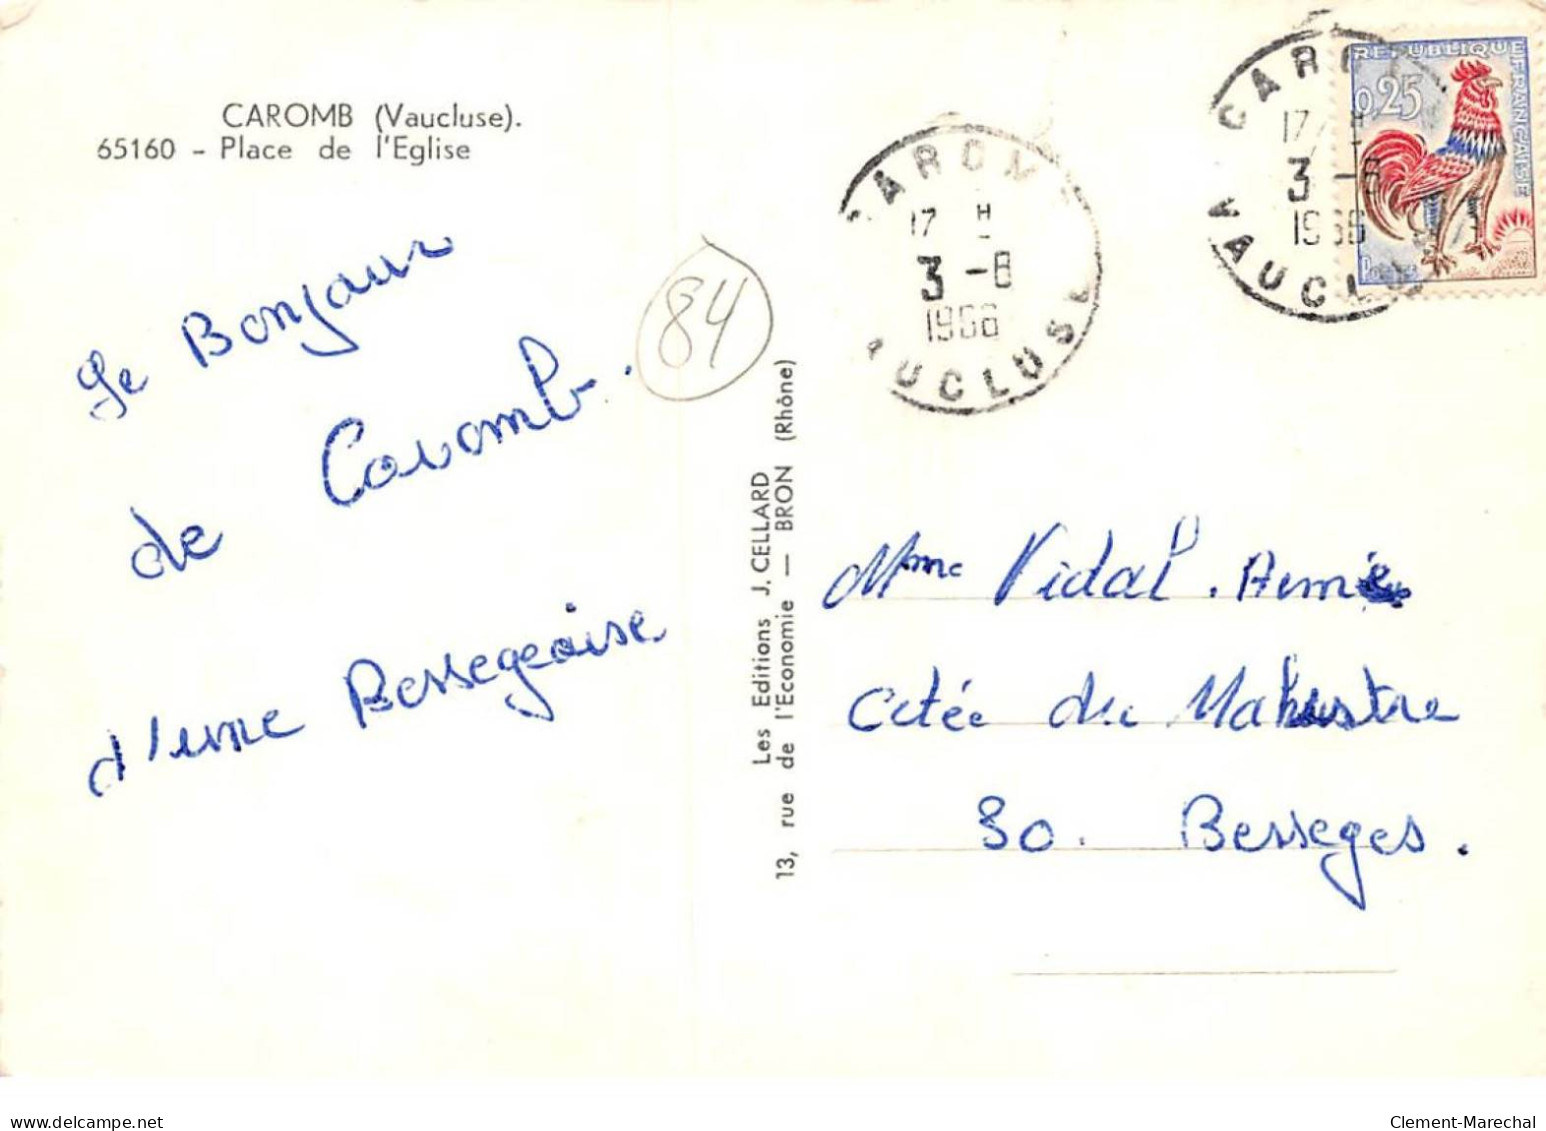 CAROMB (Vaucluse).
65160 - Place de l'Eglise
Le Bonjour
de Caromb.
d'une Bessegeoise
84
Les Editions J. CELLARD
13, rue de l'Economie — BRON (Rhône)
CAROM
17 H
3 -8
1966
AUCLUSE
CARO
17 H
3 -8
1966
VAUCLU
REPUBLIQUE FRANÇAISE
0,25
Mme Vidal. Aimé
Citée du Mahistre
30. Besseges.
delcampe.net
Clement-Marechal